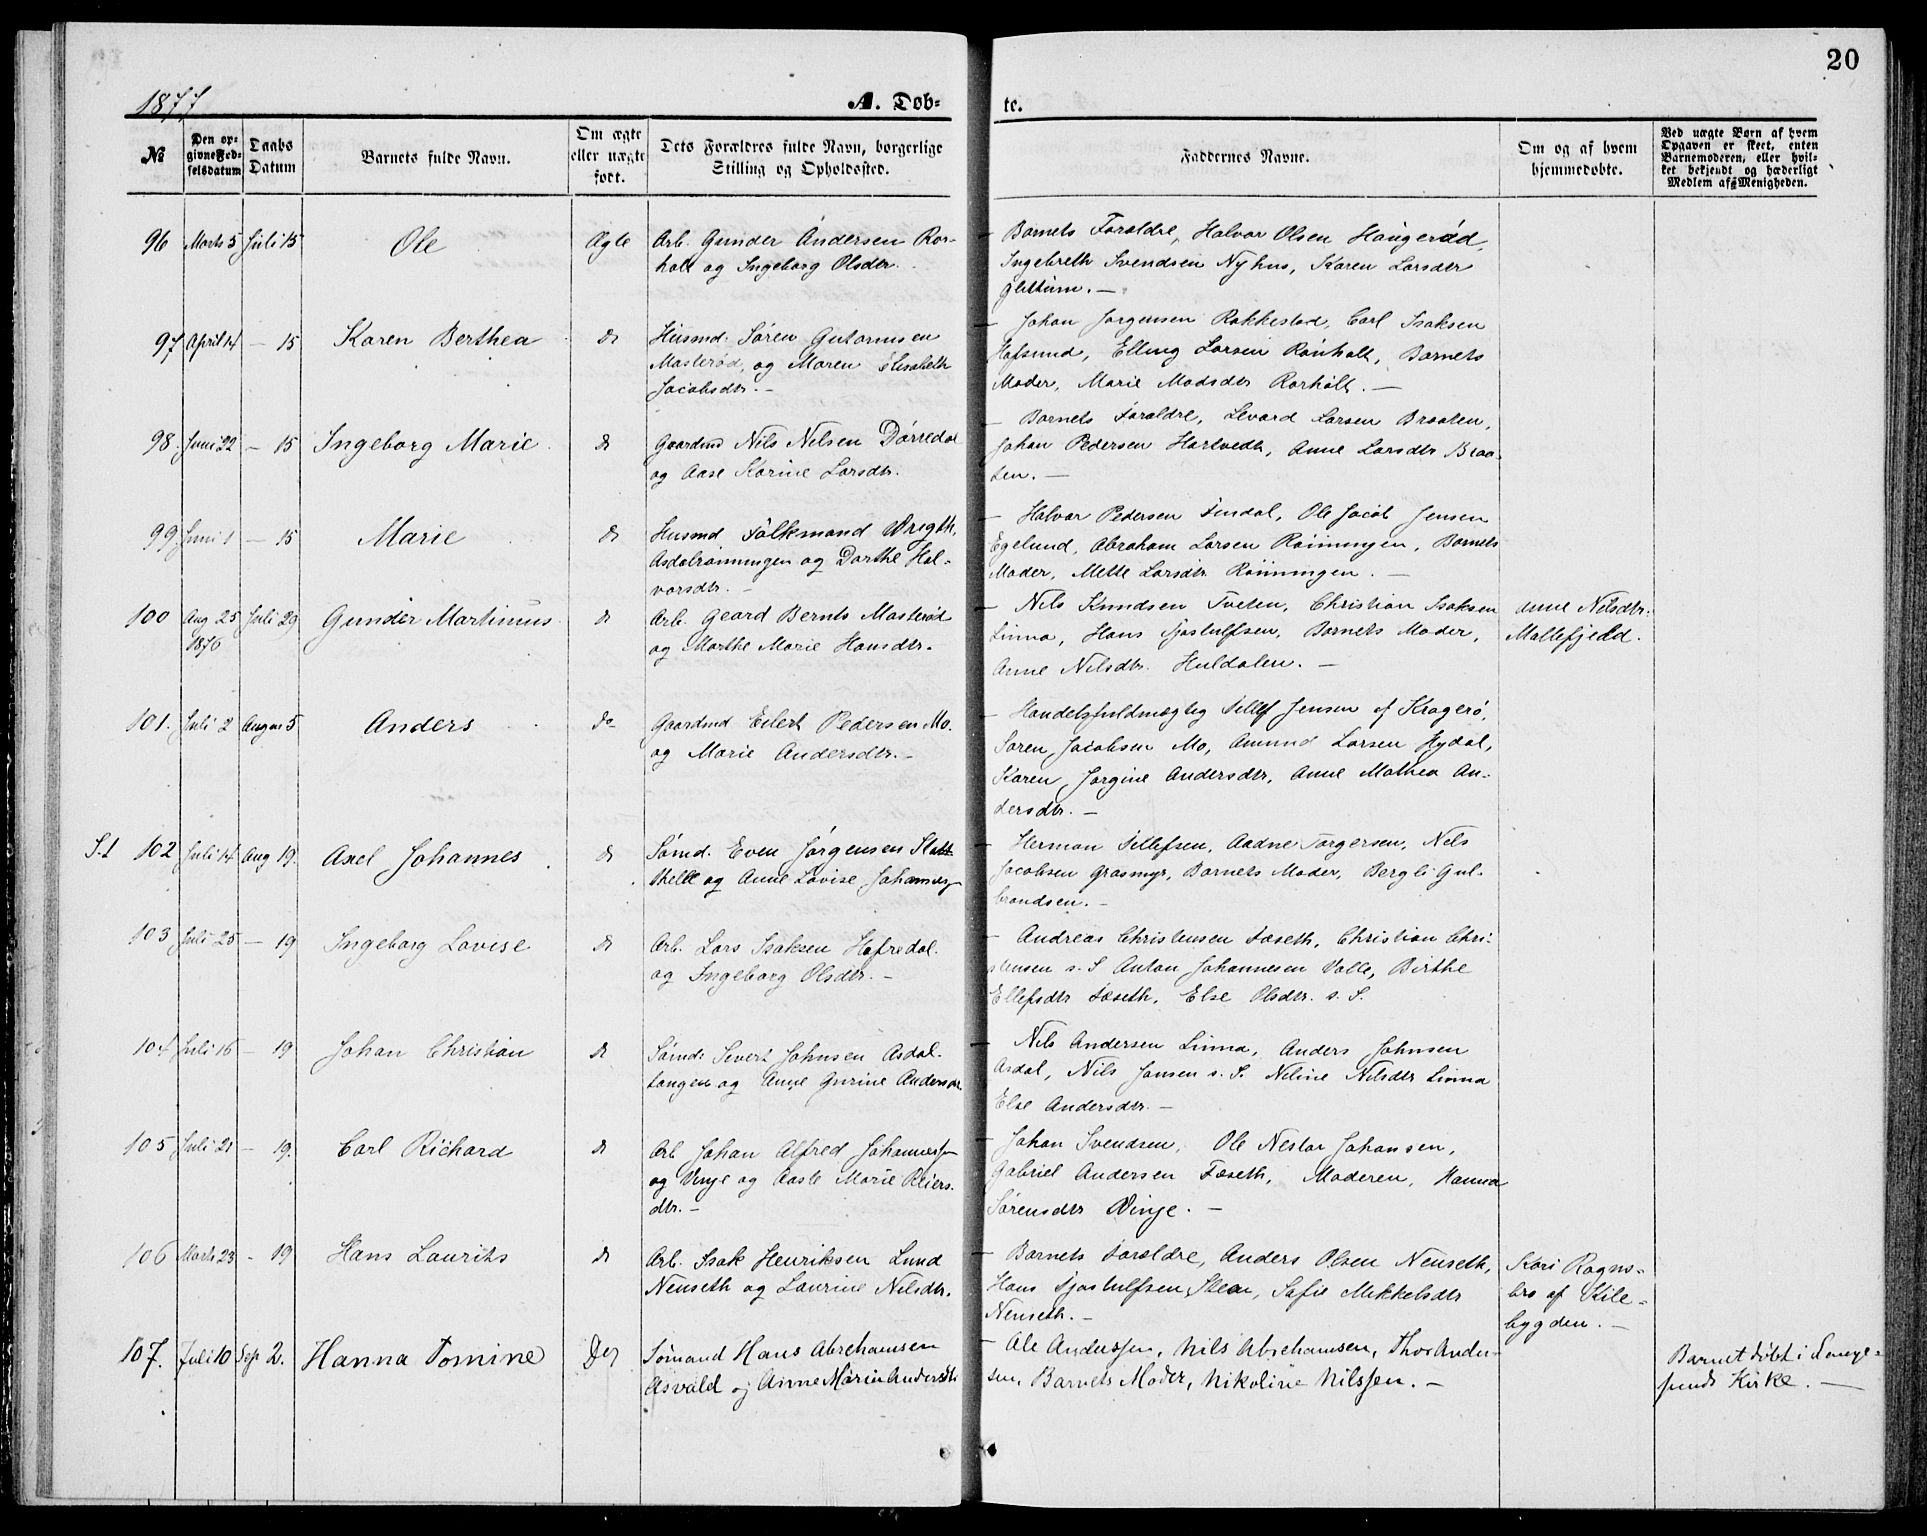 20
1877
A. Døb-
te.
№
Den op-
givne Fød-
selsdatum
Daabs
Datum
Barnets fulde Navn.
Om ægte
eller uægte
født.
Dets Forældres fulde Navn, borgerlige
Stilling og Opholdssted.
Faddernes Navne.
Om og af hvem
hjemmedøbte.
Ved uægte Børn af hvem
Opgaven er skeet, enten
Barnemoderen, eller hvil-
ket bekjendt og hæderligt
Medlem af Menigheden.
96 Marts 5 Juli 15 Ole Ægte Arb. Gunder Andersen Ror-
holt og Ingeborg Olsdtr.
– Barnets Forældre, Halvor Olsen Haugerød,
Ingebreth Svendsen Nyhus, Karen Larsdtr
97 April 14 – 15 Karen Berthea do Husmd. Søren Gutormsen
Masterød, og Maren Elisabeth
Jacobsdtr. –
– Johan Jørgensen Rakkestad, Carl Isaksen
Hafsund, Elling Larsen Rönholt, Barnets
Moder, Marie Madsdtr Rorholt. –
98. Juni 22 – 15 Ingeborg Marie do Gaardmd Nils Nilsen Dørredal
og Aase Karine Larsdtr.
– Barnets Forældre, Levard Larsen Braaten,
Johan Pedersen Hartvedt, Anne Larsdtr Braa-
ten. –
99 Juni 1 – 15 Marie do Husmd Folkmand Wregth,
Asdalrønningen og Dorthe Hal-
vorsdtr. –
– Halvor Pedersen Findal, Ole Jacob Jensen
Egelund, Abraham Larsen Rønningen, Barnets
Moder, Mette Larsdtr. Rønningen. –
100 Aug 25 Juli 29 Gunder Martinus do Arb. Geard Bernts Masterød
1876
og Marthe Marie Hansdtr.
– Nils Knudsen Tveten, Christian Isaksen
Linna, Hans Tjostulfsen, Barnets Moder,
Anne Nilsdtr. Huldalen. –
Anne Nilsdtr.
Mallefjeld.
101. Juli 2 August 5 Anders do Gaardmd Eilert Pedersen Mo.
og Marie Andersdtr. –
– Handelsfuldmægtig Tellef Jensen af Kragerø,
Søren Jacobsen Mo, Amund Larsen Hydal,
Karen Jorgine Andersdtr, Anne Mathea An-
dersdtr. –
S.1 102 Juli 14 Aug 19. Axel Johannes do Sømd. Even Jørgensen
Stathelle og Anne Lovise Johannesen
– Herman Tellefsen, Aadne Torgersen, Nils
Jacobsen Grasmyr, Barnets Moder, Bergli Gul-
brandsen. –
103 Juli 25 – 19 Ingeborg Lovise do Arb. Lars Isaksen Hafredal.
og Ingeborg Olsdtr. –
– Andreas Christensen Foseth, Christian Chri-
stensen s. S. Anton Johannesen Valle, Birthe
Ellefsdtr Foseth, Else Olsdtr. s. S.
104 Juli 16 – 19 Johan Christian do Sømd. Sivert Johnsen Asdal-
tangen og Anne Gurine Andersdtr
– Nils Andersen Linna, Anders Johnsen
Asdal, Nils Jansen s. S. Neline Nilsdtr Linna
Else Andersdtr. –
105 Juli 21 – 19. Carl Richard do Arb Johan Alfred Johannessen
og Vinje og Aaste Marie Reiers-
dtr. –
– Johan Svendsen, Ole Nestor Johansen,
Gabriel Andersen Foseth, Moderen, Hanna
Sørensdtr Vinje. –
106 Marts 23 – 19 Hans Laurits do Arb. Isak Henriksen Lund
Nenseth og Laurine Nilsdtr.
– Barnets Forældre, Anders Olsen Nenseth,
Hans Tjostulfsen Steen, Sofie Mikkelsdtr
Nenseth. –
Kari Ragns-
bro af Kile-
bygden. –
107. Juli 10 Sep 2. Hanna Tomine Do Sømand Hans Abrahamsen
Asvald og Anne Marie Andersdtr
– Ole Anderssen, Nils Abrahamsen, Thor Ander-
sen, Barnets Moder, Nikoline Nilssen. –
Barnet døbt i Lange-
sunds Kirke. –